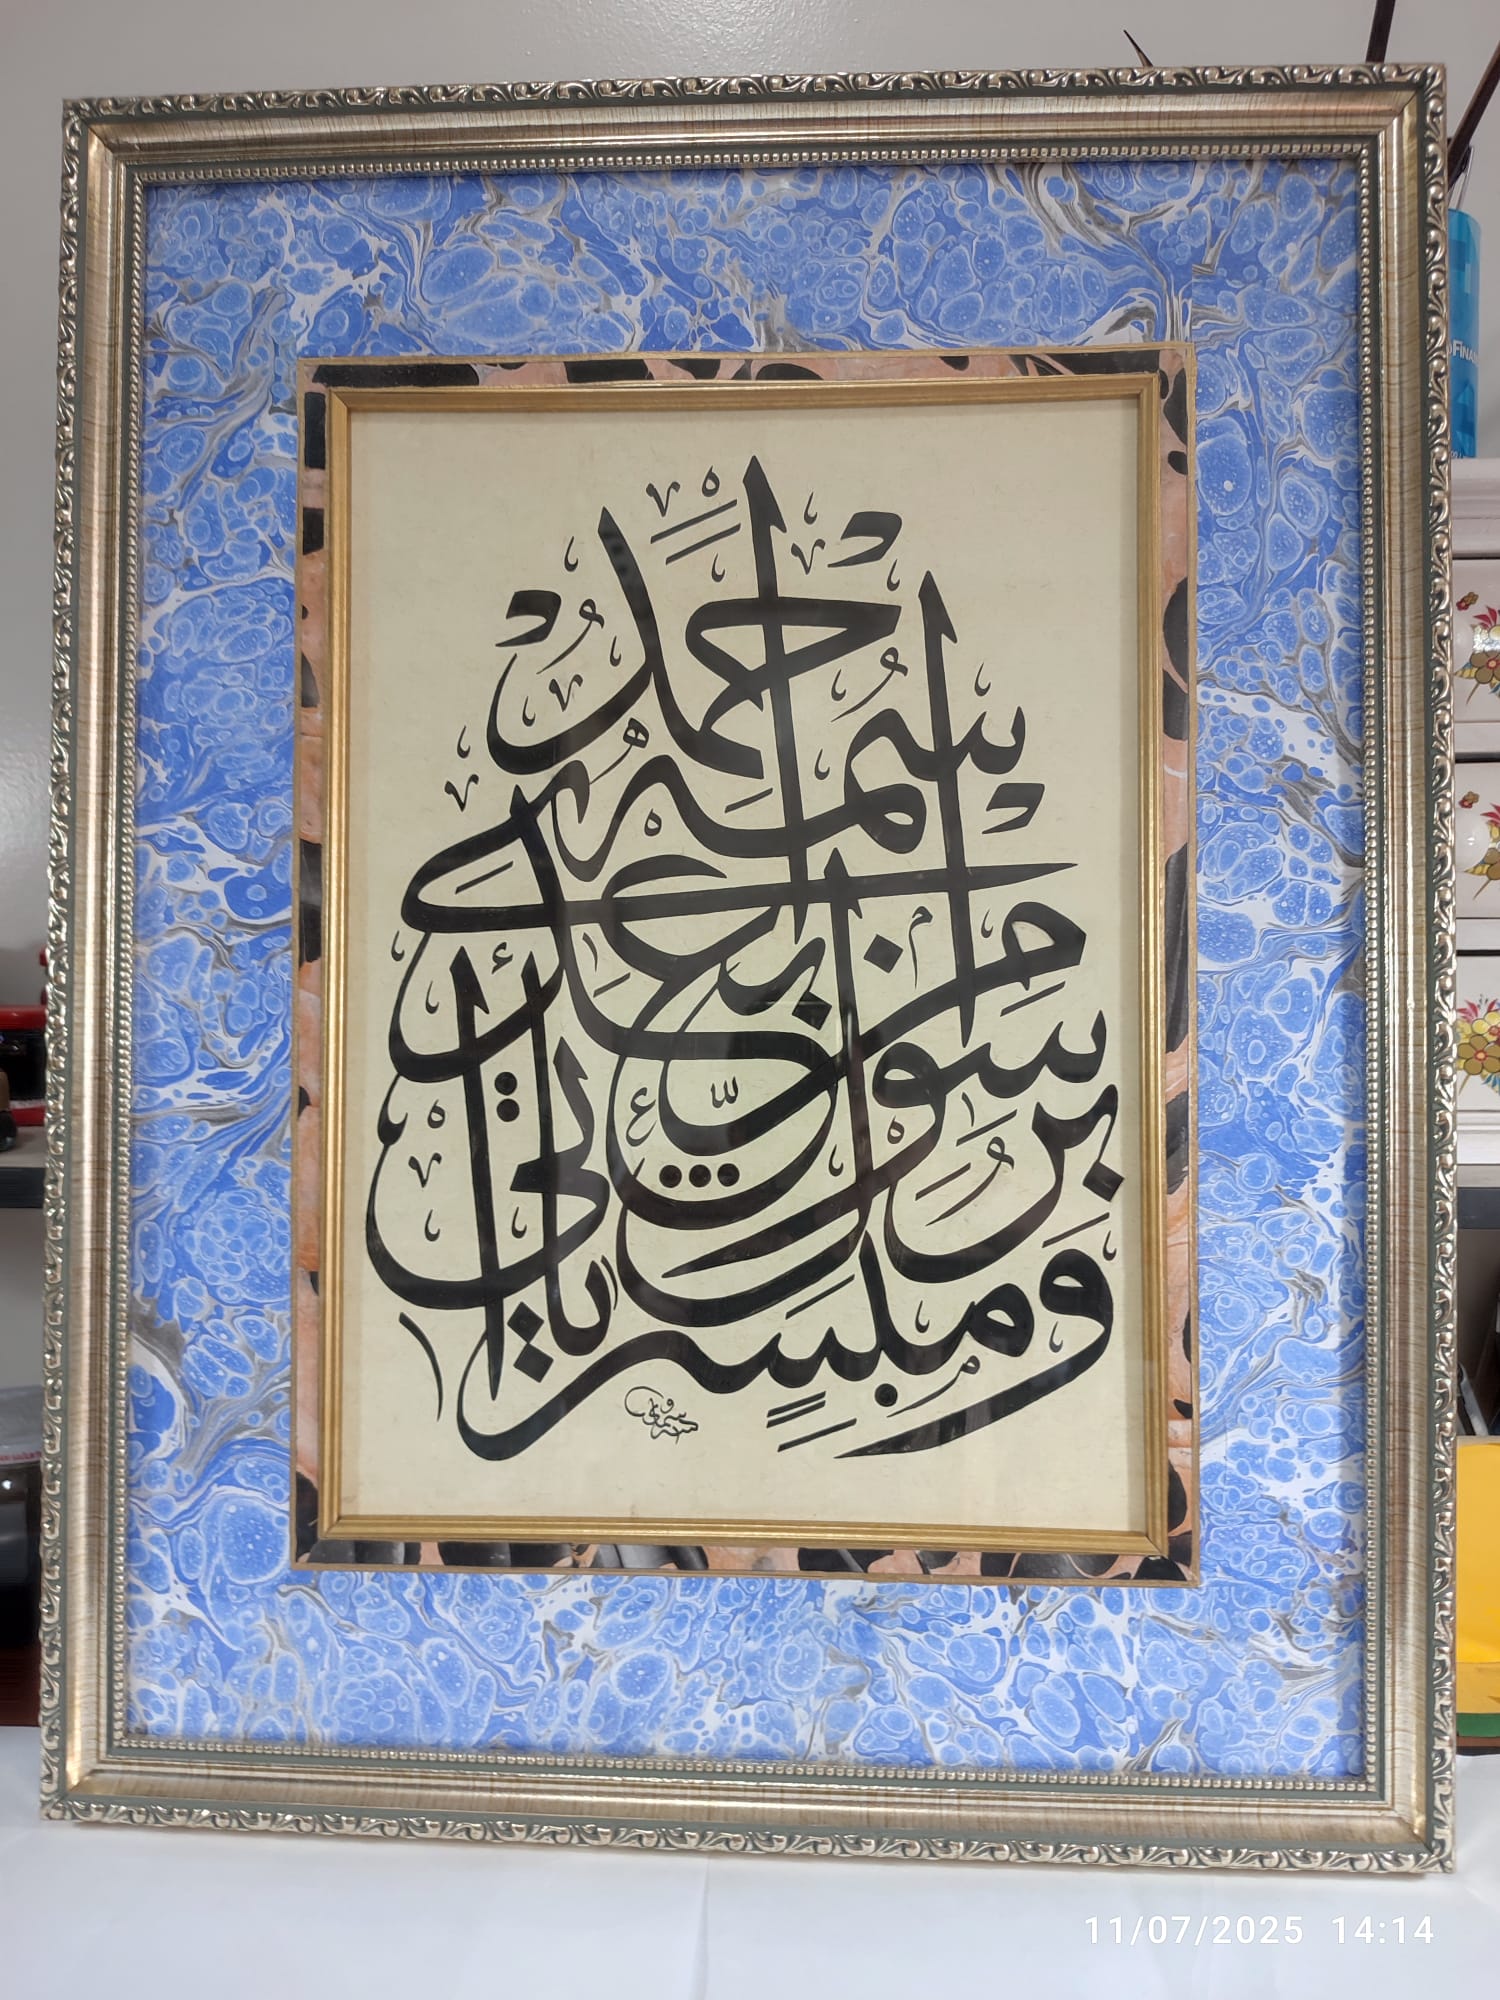 وَمُبَشِّرًا
بِرَسُولٍ يَأْتِي
مِنْ بَعْدِي
اسْمُهُ أَحْمَدُ
11/07/2025 14:14